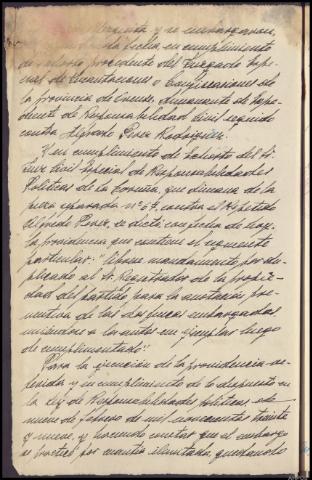 y no embargaran,
fecha, en cumplimiento
de exhorto procedente del Juzgado Espe-
cial de Incautaciones o Confiscaciones de
la provincia de Orense, dimanante de Expe-
diente de Responsabilidad Civil seguido
contra Alfredo Perez Rodriguez.
Y en cumplimiento de exhorto del Sr.
Juez Civil Especial de Responsabilidades
Politicas de la Coruña, que dimana de la
pieza separada nº 67 contra el repetido
Alfredo Perez, se dictó con fecha de hoy
la providencia que contiene el siguiente
particular: "Librese mandamiento por du-
plicado al Sr. Registrador de la propie-
dad del partido para la anotación pre-
ventiva de las dos fincas embargadas
uniendose a los autos un ejemplar luego
de cumplimentado".
Para la ejecución de la providencia re-
ferida y en cumplimiento de lo dispuesto en
la Ley de Responsabilidades Politicas, de
nueve de febrero de mil novecientos treinta
y nueve, y haciendo constar que el embargo
se practicó por cuantia ilimitada, quedando